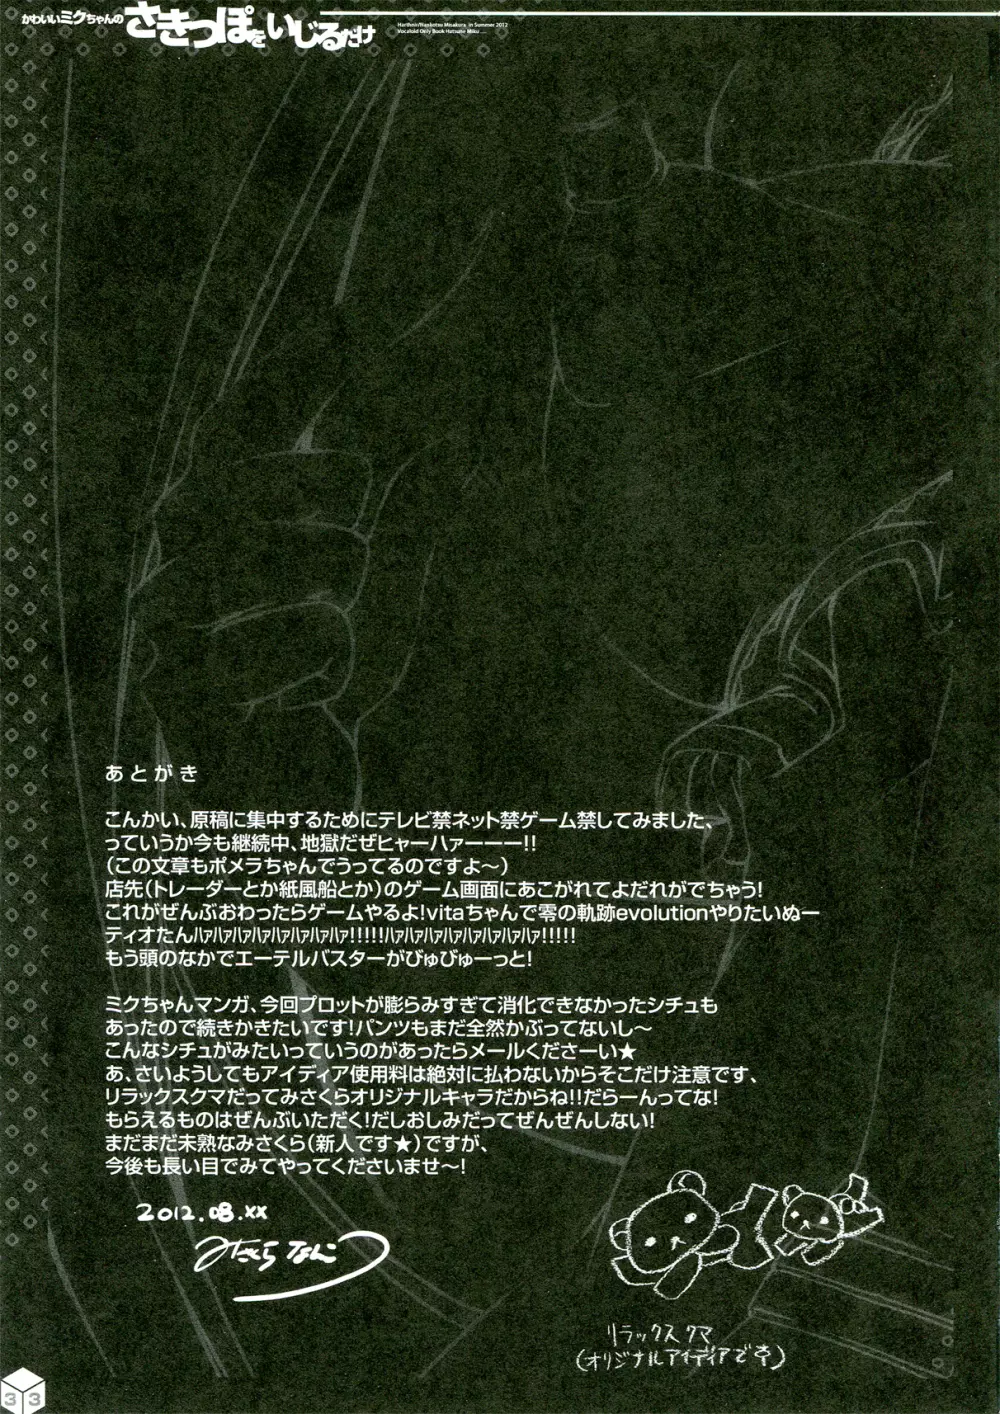 かわいいミクちゃんの さきっぽをいじるだけ
Harthnir/Nankotsu Misakura in Summer 2012
Vocaloid Only Book Hatsune Miku ....
あとがき
こんかい、原稿に集中するためにテレビ禁ネット禁ゲーム禁してみました、
っていうか今も継続中、地獄だぜヒャーハァーーー!!
(この文章もポメラちゃんでうってるのですよ～)
店先(トレーダーとか紙風船とか)のゲーム画面にあこがれてよだれがでちゃう!
これがぜんぶおわったらゲームやるよ!vitaちゃんで零の軌跡evolutionやりたいぬー
ティオたんﾊｧﾊｧﾊｧﾊｧﾊｧﾊｧﾊｧﾊｧ!!!!!ﾊｧﾊｧﾊｧﾊｧﾊｧﾊｧﾊｧﾊｧ!!!!!
もう頭のなかでエーテルバスターがびゅびゅーっと!
ミクちゃんマンガ、今回プロットが膨らみすぎて消化できなかったシチュも
あったので続きかきたいです!パンツもまだ全然かぶってないし～
こんなシチュがみたいっていうのがあったらメールくださーい★
あ、さいようしてもアイディア使用料は絶対に払わないからそこだけ注意です、
リラックスクマだってみさくらオリジナルキャラだからね!!だらーんってな!
もらえるものはぜんぶいただく!だしおしみだってぜんぜんしない!
まだまだ未熟なみさくら(新人です★)ですが、
今後も長い目でみてやってくださいませ～!
2012.08.xx
みさくらなんこつ
リラックスクマ
(オリジナルアイディアです)
33